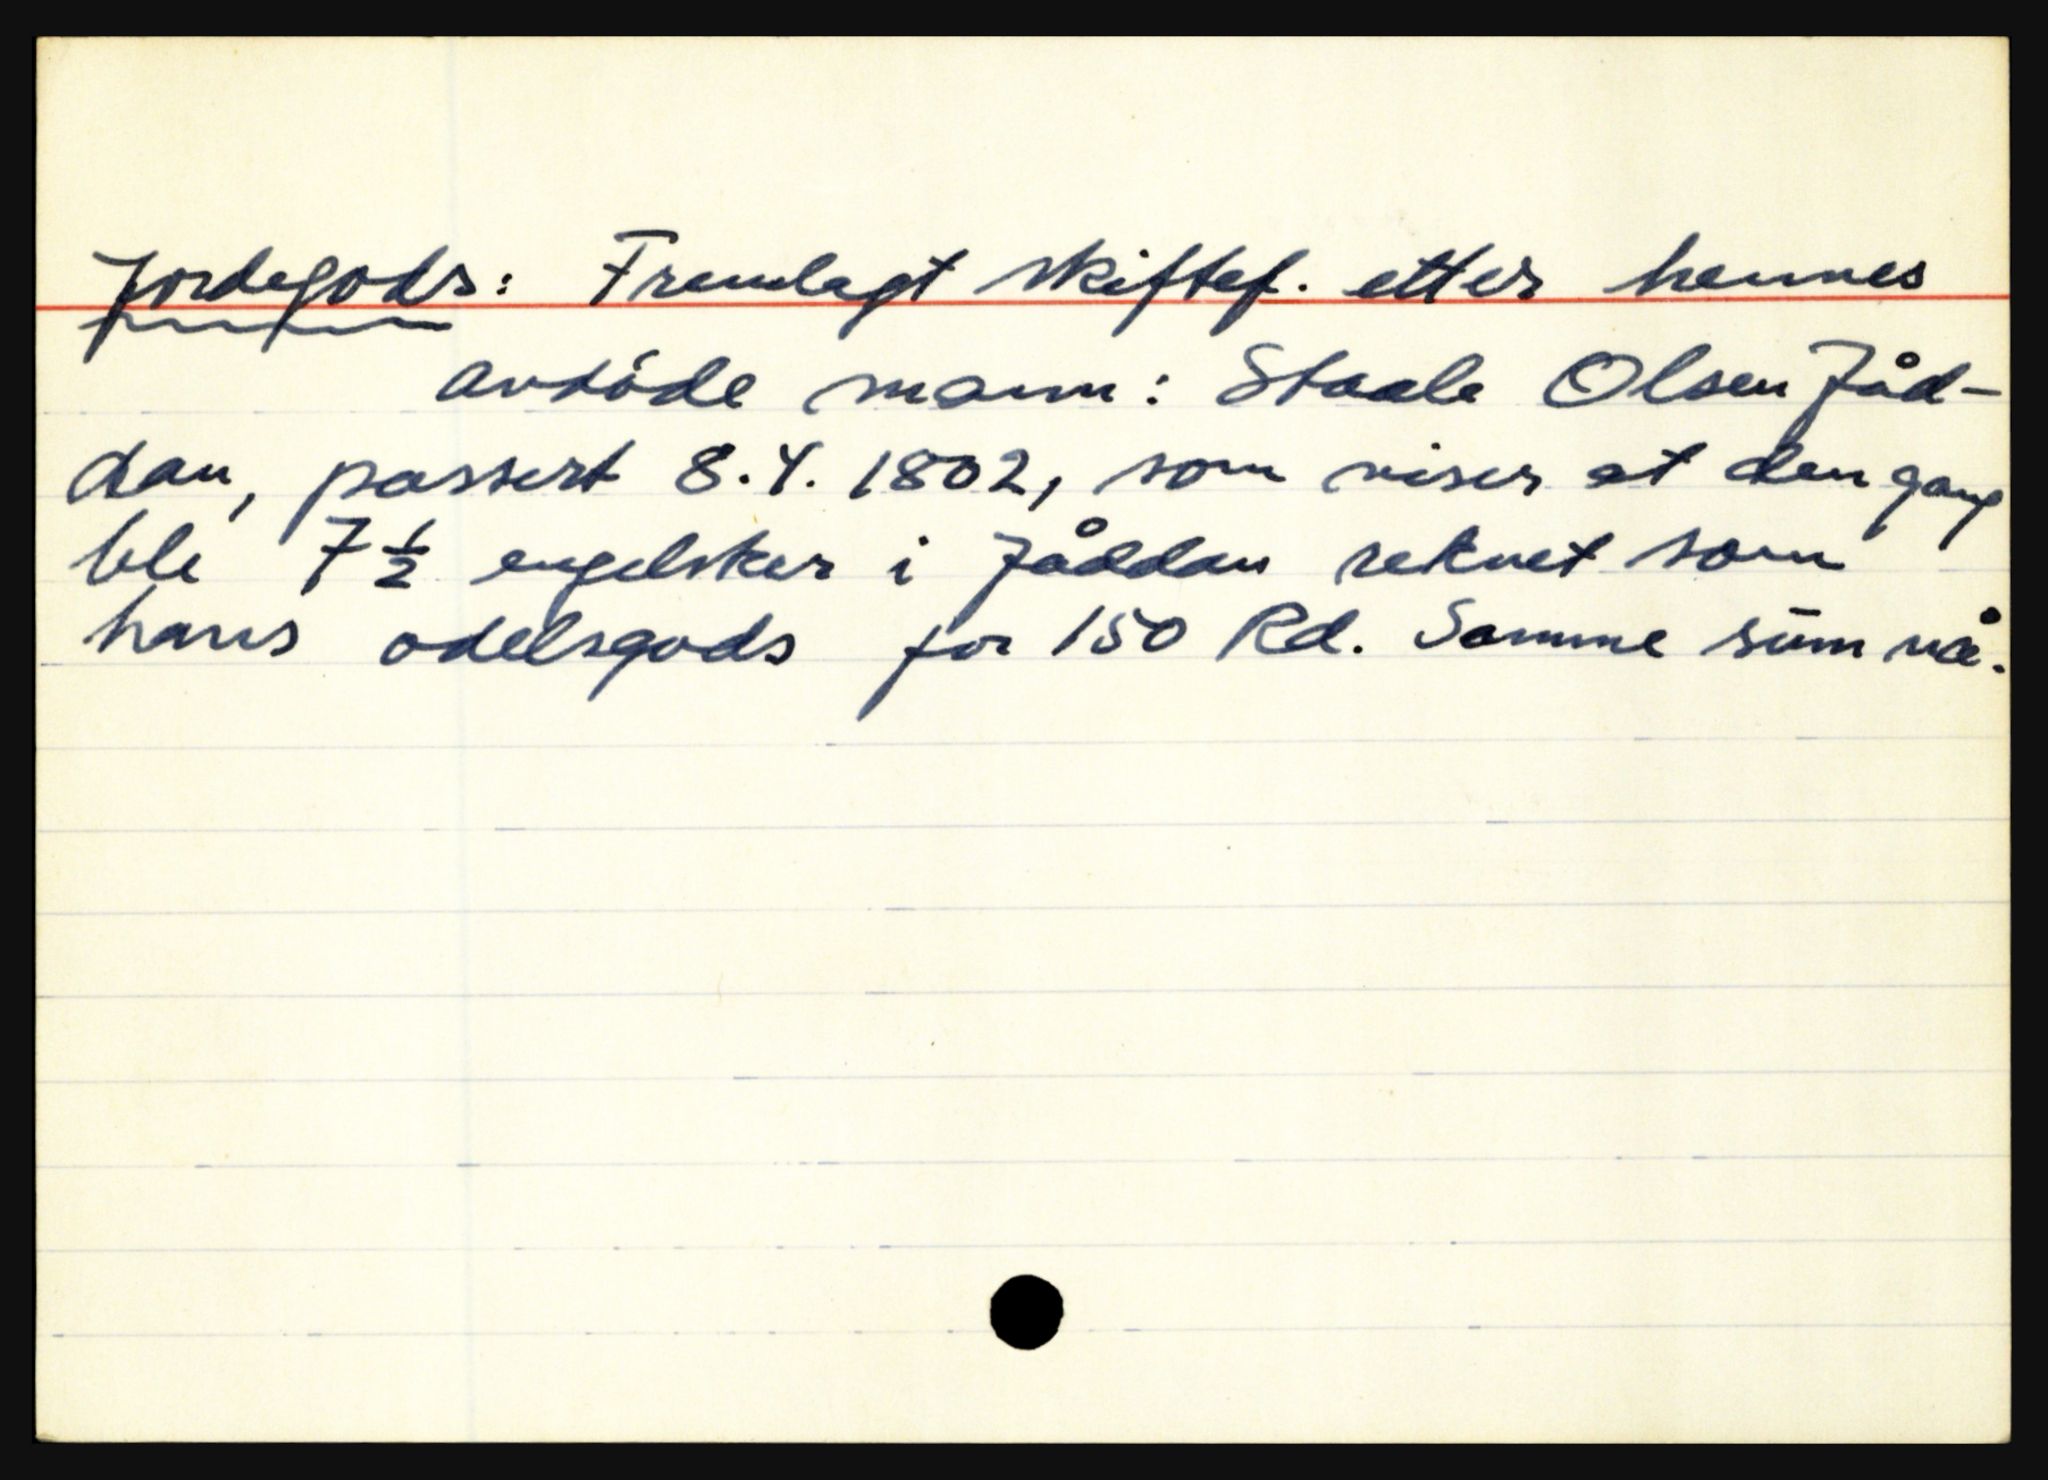 Jordegods: Fremlagt skiftef. etter hennes
avdöde mann: Staale Olsen Jåd-
dan, passert 8.4. 1802, som viser at den gang
ble 7 ½ engelsker i Jåddan reknet som
hans odelsgods for 150 Rd. Samme sum nå.